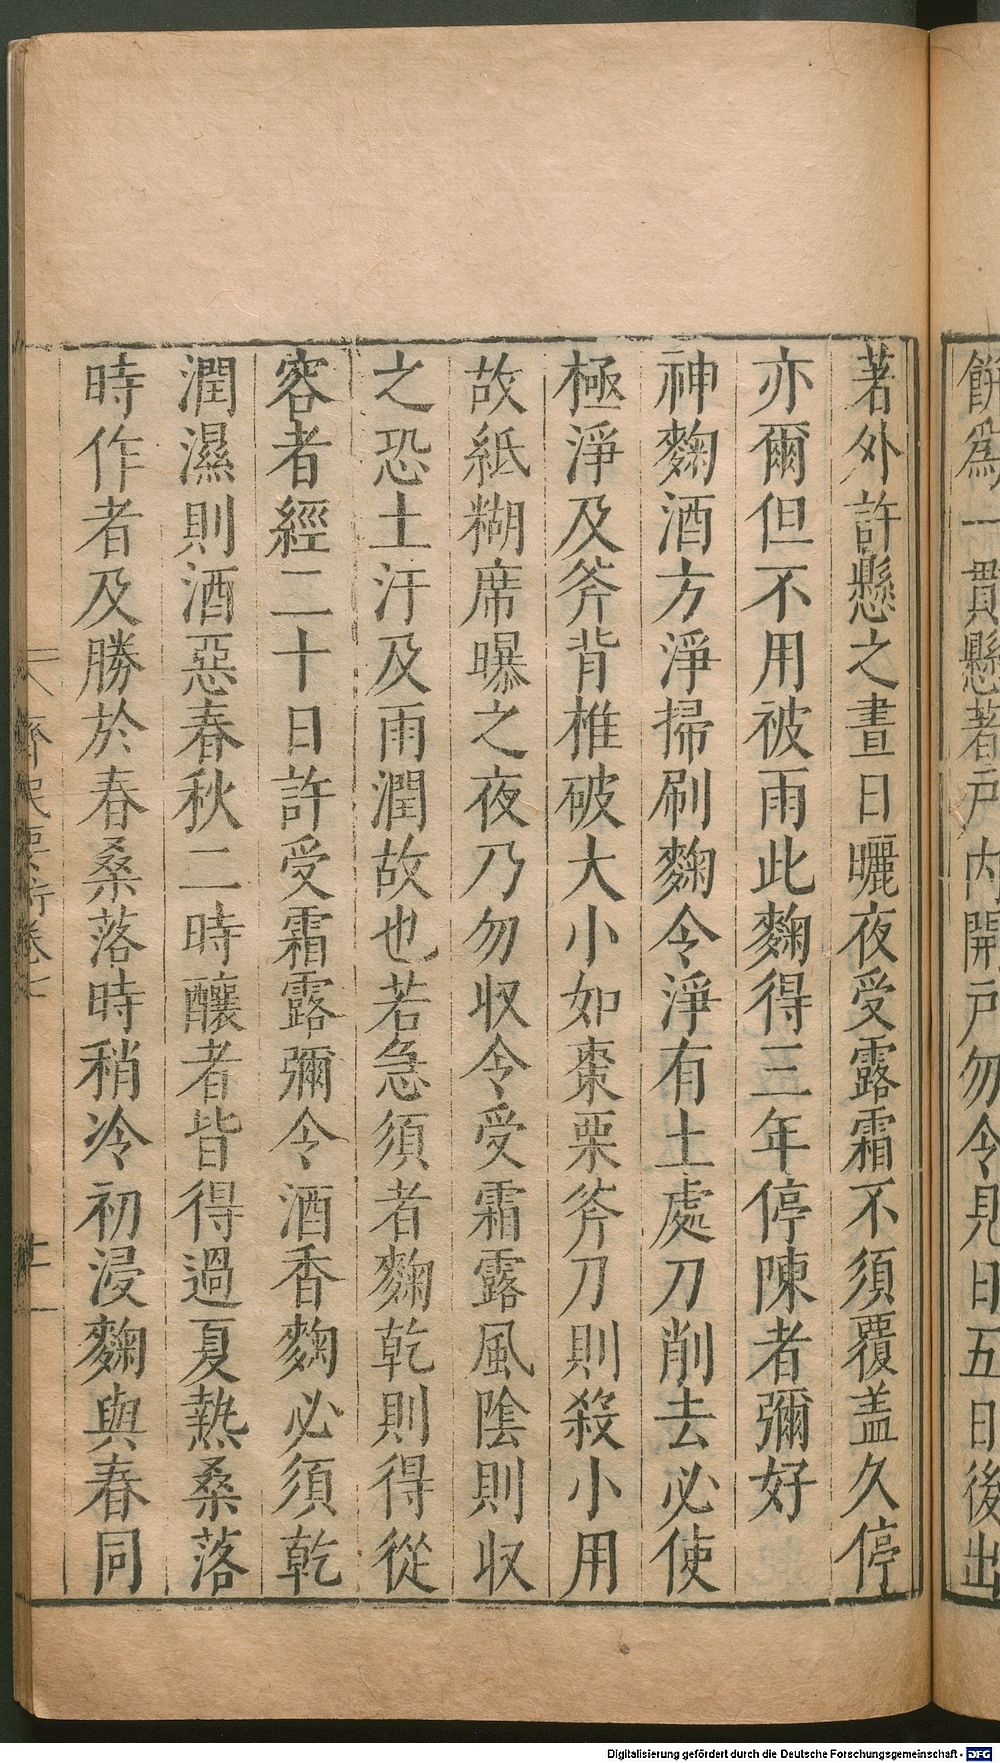 餅爲一貫懸著戸内開戸勿令見日五日後出
著外許懸之晝日曬夜受露霜不須覆盖久停
亦爾但不用被雨此麴得三年停陳者彌好
神麴酒方淨掃刷麴令淨有土處刀削去必使
極淨及斧背椎破大小如棗栗斧刀則殺小用
故紙糊席曝之夜乃勿収令受霜露風陰則収
之恐土汙及雨潤故也若急須者麴乾則得從
容者經二十日許受霜露彌令酒香麴必須乾
潤濕則酒惡春秋二時釀者皆得過夏熱桑落
時作者及勝於春桑落時稍冷初浸麴與春同
齊民要術卷七
十一
Digitalisierung gefördert durch die Deutsche Forschungsgemeinschaft - DFG